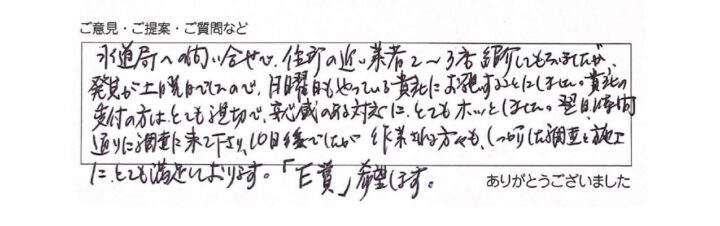 ご意見・ご提案・ご質問など
水道局への問い合せで、住所の近い業者2〜3者紹介してもらいましたが、
発見が土曜日でしたので、日曜日もやっている貴社にお願いすることにしました。貴社の
受付の方はとても適切で、安心感のある対応に、とてもホッとしました。翌日、時間
通りに調査に来て下さり、10日後でしたが 作業される方々も、しっかりした調査と施工
に、とても満足しております。「E賞」希望します。
ありがとうございました